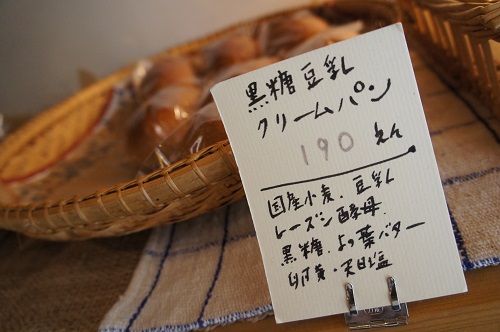 黒糖豆乳
クリームパン
190 えん
国産小麦、豆乳
レーズン酵母、
黒糖、よつ葉バター
卵黄・天日塩